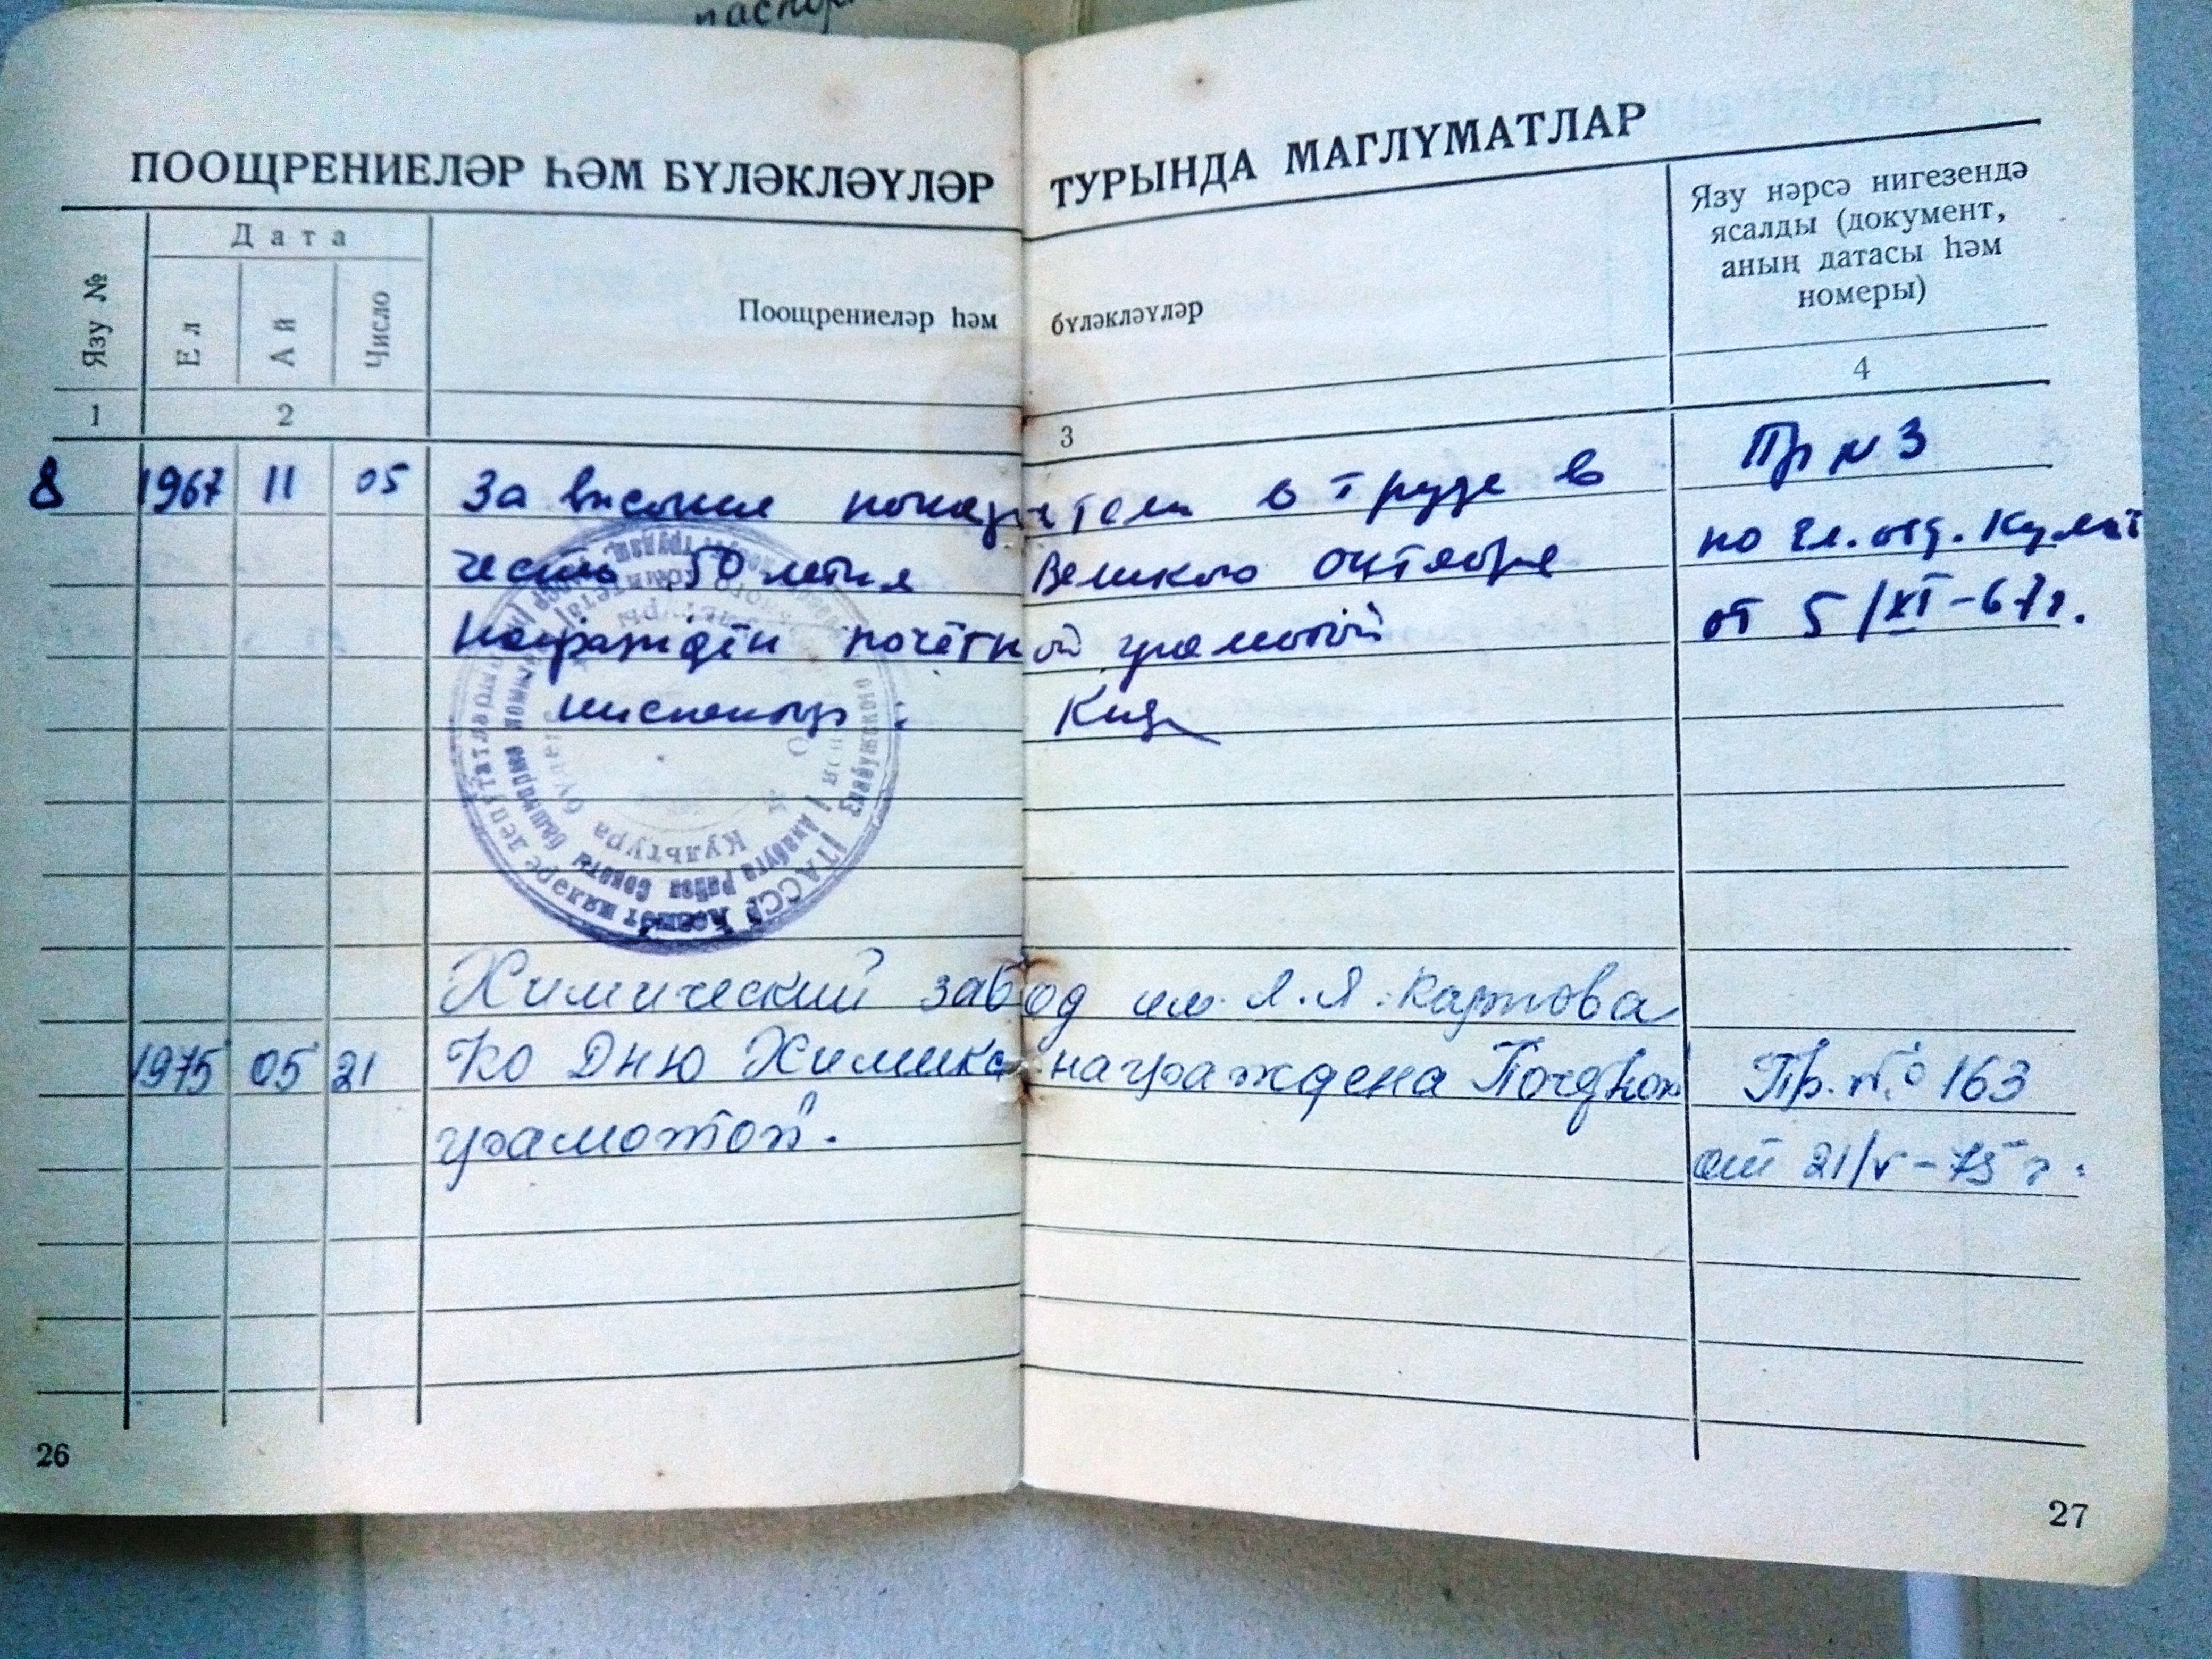 паспор
ПООЩРЕНИЕЛӘР ҺӘМ БҮЛӘКЛӘҮЛӘР ТУРЫНДА МАГЛҮМАТЛАР
Язу №
Дата
Ел
Ай
Число
Поощрениеләр һәм бүләкләүләр
Язу нәрсә нигезендә
ясалды (документ,
аның датасы һәм
номеры)
1 2 3 4
8 1967 11 05 За высокие показатели в труде в Пр N 3
честь 50 летия Великого октября по отд. Культ
награждён почётной грамотой от 5/XI-67г.
инспектор:
ТАССР
Алабуга район Советы
Культура
Химический завод им. Л.Я. Карпова
1975 05 21 Ко Дню Химика награждена Почётной Пр. № 163
грамотой. от 21/V-75 г.
26
27